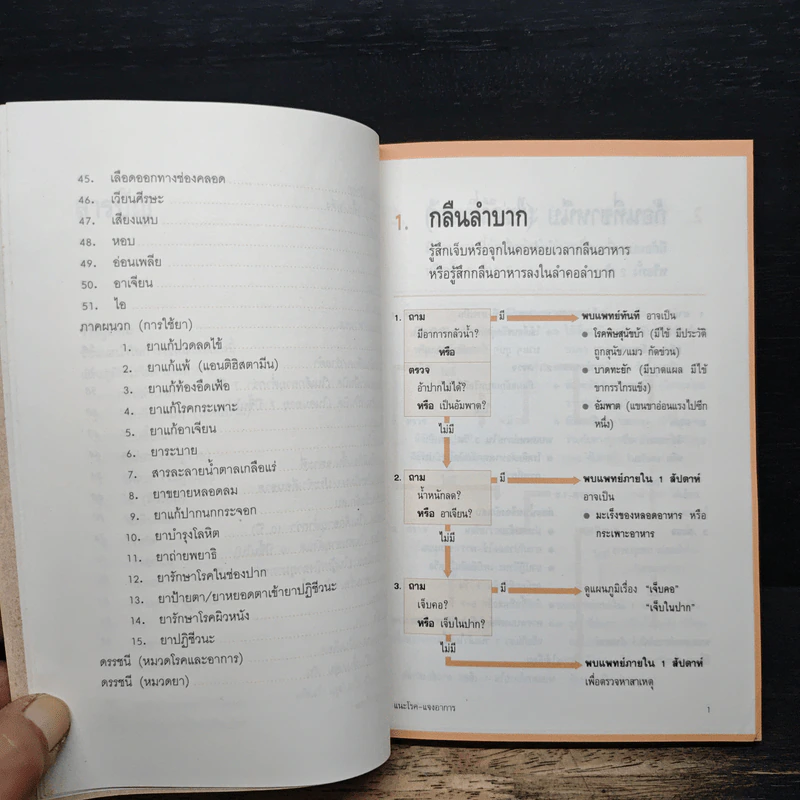 45. เลือดออกทางช่องคลอด
46. เวียนศีรษะ
47. เสียงแหบ
48. หอบ
49. อ่อนเพลีย
50. อาเจียน
51. ไอ
ภาคผนวก (การใช้ยา)
1. ยาแก้ปวดลดไข้
2. ยาแก้แพ้ (แอนติฮิสตามีน)
3. ยาแก้ท้องอืดเฟ้อ
4. ยาแก้โรคกระเพาะ
5. ยาแก้อาเจียน
6. ยาระบาย
7. สารละลายน้ำตาลเกลือแร่
8. ยาขยายหลอดลม
9. ยาแก้ปากนกกระจอก
10. ยาบำรุงโลหิต
11. ยาถ่ายพยาธิ
12. ยารักษาโรคในช่องปาก
13. ยาป้ายตา/ยาหยอดตาเข้ายาปฏิชีวนะ
14. ยารักษาโรคผิวหนัง
15. ยาปฏิชีวนะ
ดรรชนี (หมวดโรคและอาการ)
ดรรชนี (หมวดยา)
1. กลืนลำบาก
รู้สึกเจ็บหรือจุกในคอหอยเวลากลืนอาหาร
หรือรู้สึกกลืนอาหารลงในลำคอลำบาก
1. ถาม
มีอาการกลัวน้ำ?
หรือ
ตรวจ
อ้าปากไม่ได้?
หรือ เป็นอัมพาต?
มี
พบแพทย์ทันที อาจเป็น
● โรคพิษสุนัขบ้า (มีไข้ มีประวัติ
ถูกสุนัข/แมว กัดข่วน)
● บาดทะยัก (มีบาดแผล มีไข้
ขากรรไกรแข็ง)
● อัมพาต (แขนขาอ่อนแรงไปซีก
หนึ่ง)
ไม่มี
2. ถาม
น้ำหนักลด?
หรือ อาเจียน?
มี
พบแพทย์ภายใน 1 สัปดาห์
อาจเป็น
● มะเร็งของหลอดอาหาร หรือ
กระเพาะอาหาร
ไม่มี
3. ถาม
เจ็บคอ?
หรือ เจ็บในปาก?
มี
ดูแผนภูมิเรื่อง "เจ็บคอ"
"เจ็บในปาก"
ไม่มี
พบแพทย์ภายใน 1 สัปดาห์
เพื่อตรวจหาสาเหตุ
แนะโรค-แจงอาการ
1